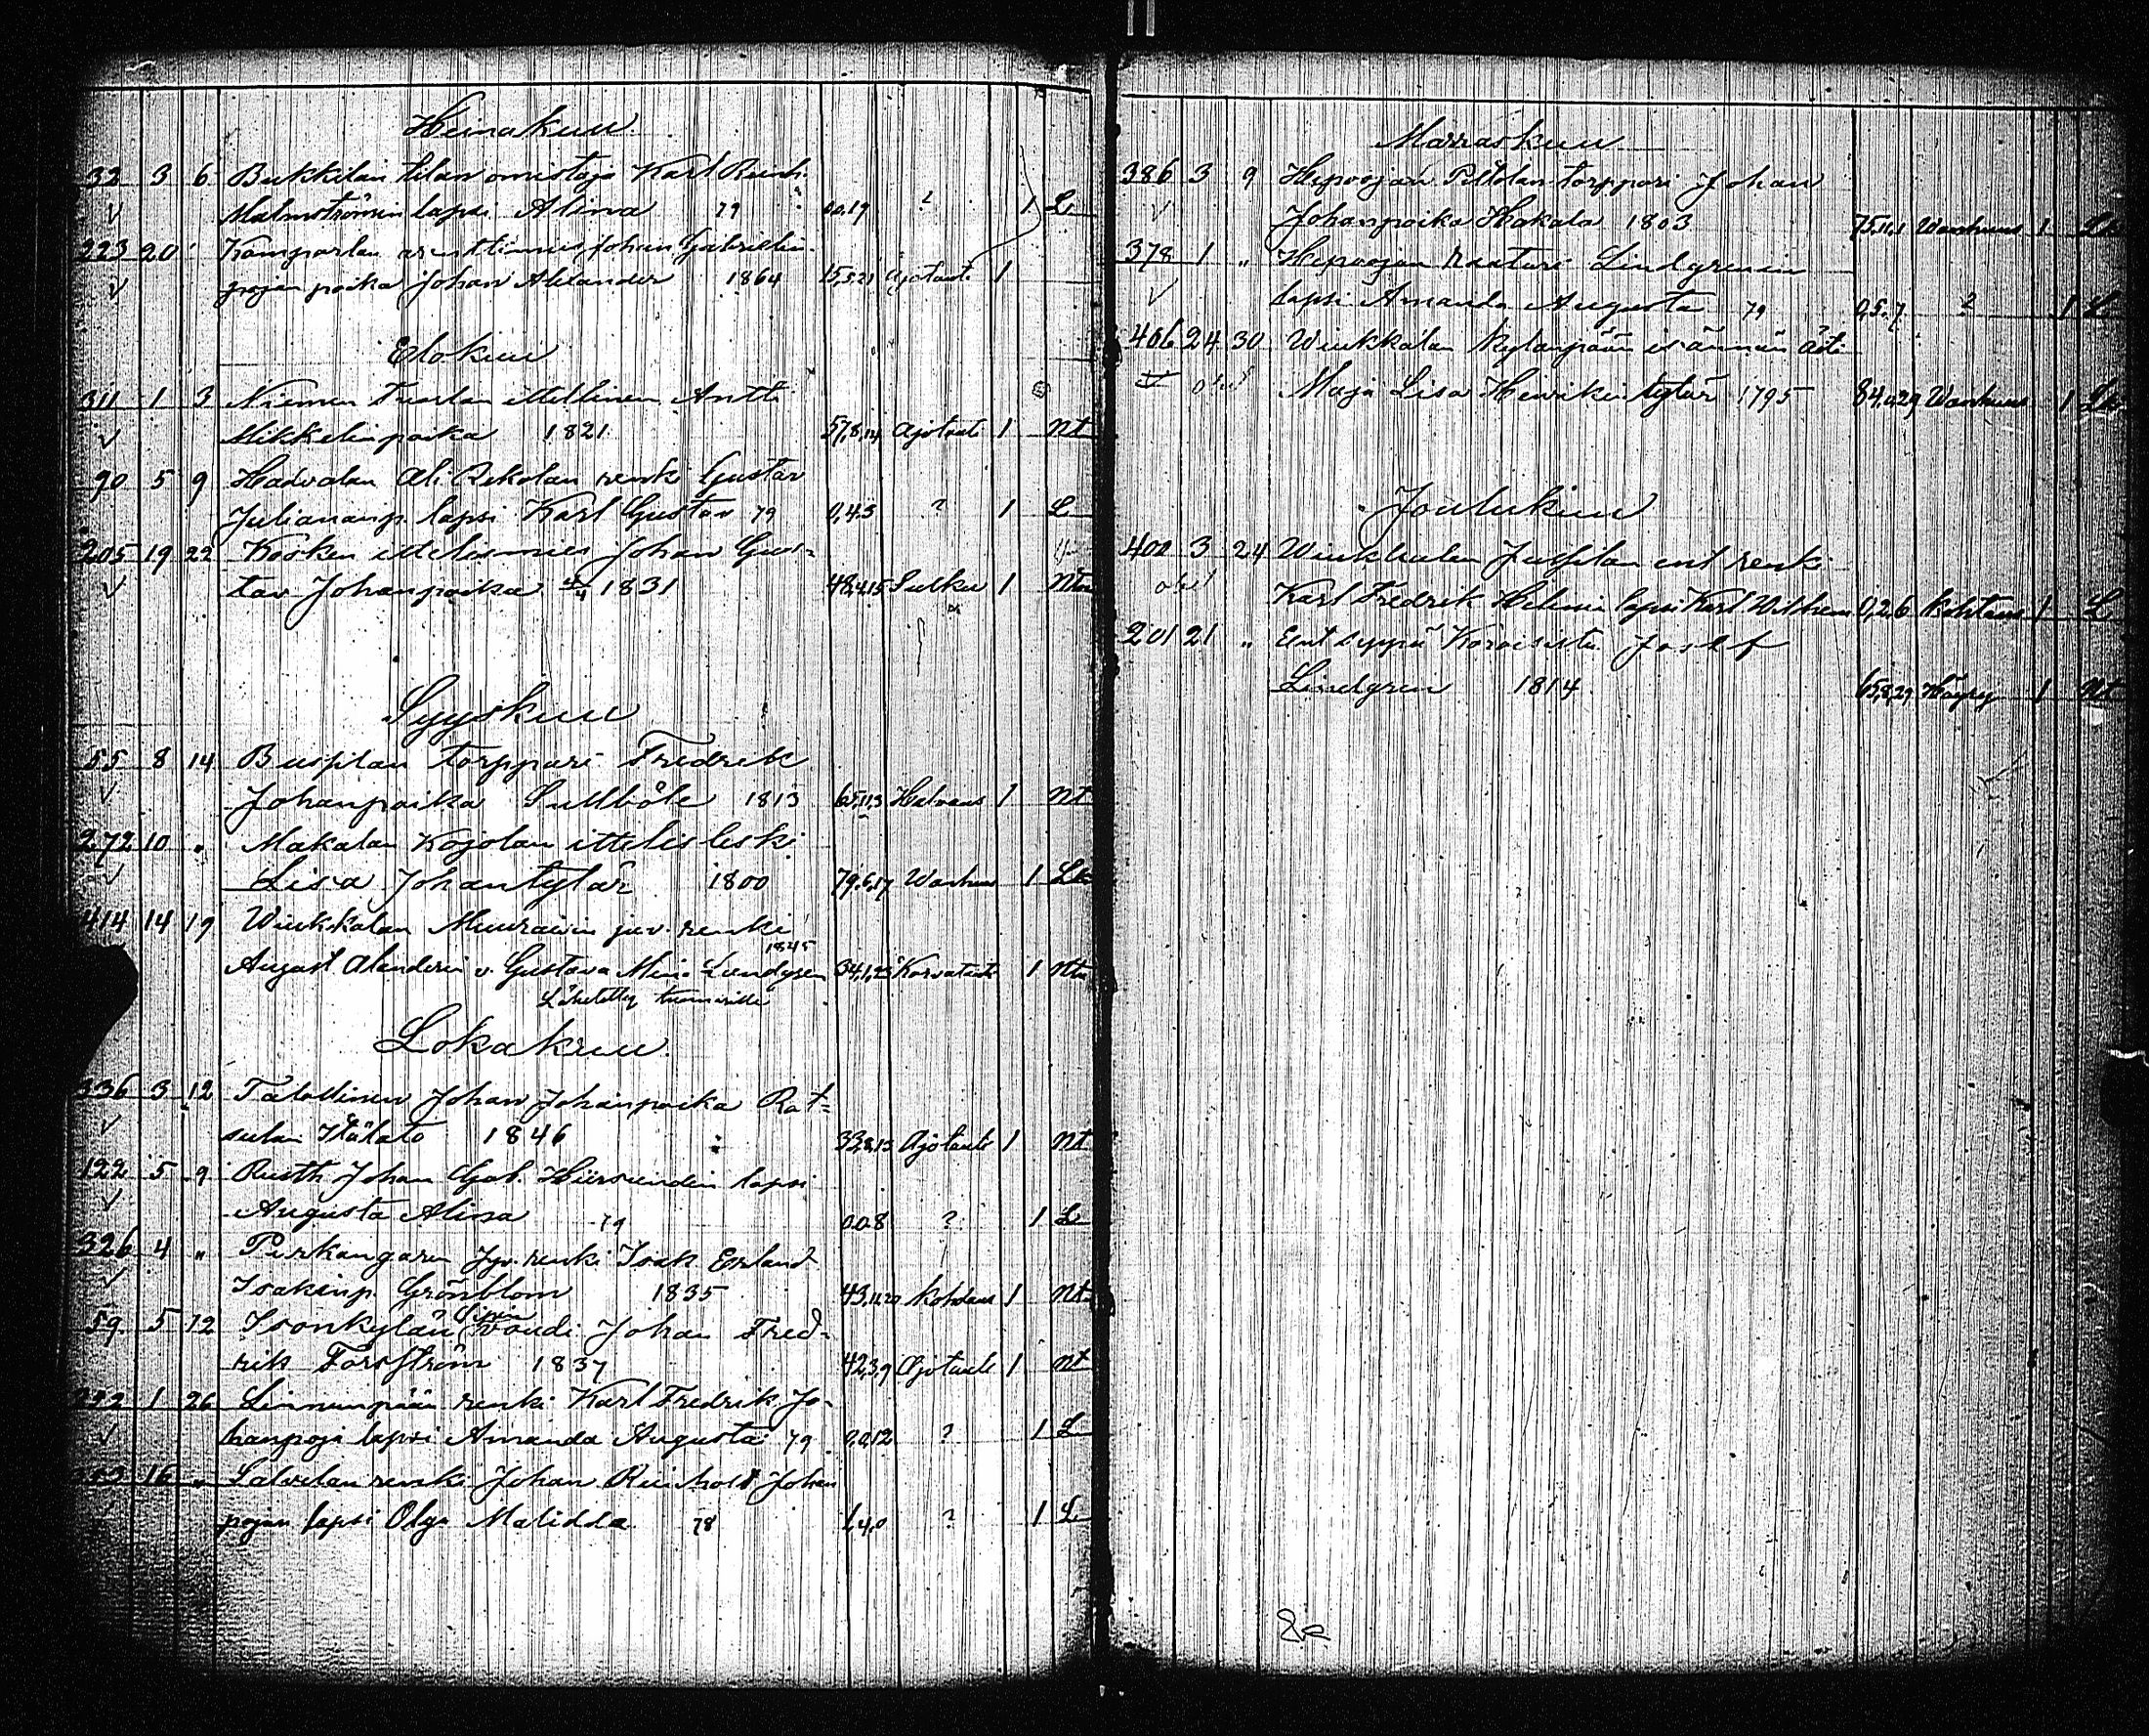 Heinäkuu
32 3 6 Bukkilan tilan omistaja Karl Reinh.
Malmströmin lapsi Alina 79 0,0,19 ? 1 L
223 20 Kamparlan Johan Gabrielin
pojan poika Johan Alexander 1864 15,3,21 Ajotauti 1
Elokuu
311 1 3 Niemen Tuorlan ittellinen Antti
Mikkelinpoika 1821 57,8,14 Ajotauti 1 Nt
90 5 9 Hadvalan Ali Rekolan renki Gustav
Juliananp. lapsi Karl Gustav 79 0,4,3 ? 1 L
205 19 22 Kosken ittelismies Johan Gus-
tav Johanpoika 1831 48,4,15 1 Ntm
Syyskuu
55 8 14 torppari Fredrik
Johanpoika Sullböle 1813 65,11,3 Halvaus 1 Nt
272 10 " Makalan Kojolan ittelis leski
Lisa Johantytär 1800 79,6,17 Wanhuus 1 Lk
414 14 19 Wiukkalan Muurawin juv. renki
1845
August Alanderin v. Gustava Mina Lundgren 34,1,23 1 Ntm
Lähetetty tuomarille
Lokakuu
336 3 12 Talollinen Johan Johanpoika Rat-
sulan Itätalo 1846 33,8,13 Ajotauti 1 Nt
122 5 9 Rusth. Johan Gab. lapsi
Augusta Alina 79 0,0,8 ? 1 L
326 4 " renki Isak Erland
Isakinp. Grönblom 1835 43,11,20 1 Nt
59 5 12 Isonkylän vouti Johan Fred-
rik Forsström 1837 42,3,9 Ajotauti 1 Nt
1 26 Linnunpään renki Karl Fredrik Jo-
hanpoja lapsi Amanda Augusta 79 0,0,12 ? 1 L
16 " Salvelan renki Johan Reinhold Johan
pojan lapsi Olga Matilda 78 1,4,0 ? 1 L
Marraskuu
386 3 9 Hepoojan Piltolan torppari Johan
Johanpoika Hakala 1803 75,11,1 Wanhuus 1 Lk
378 1 " Hepoojan Räätäri Lindgrenin
lapsi Amanda Augusta 79 0,5,7 ? 1 L
406 24 30 Wiukkalan Kylänpään isännän äiti
Maja Lisa Henrikintytär 1795 84,0,29 Wanhuus 1 Lk
Joulukuu
400 3 24 Wiukkalan ent renki
Karl Fredrik Helenin lapsi Karl Wilhem 0,2,6 1 L
201 21 " Ent seppä Koroisista Josef
Lindgren 1814 65,8,29 1 Nt